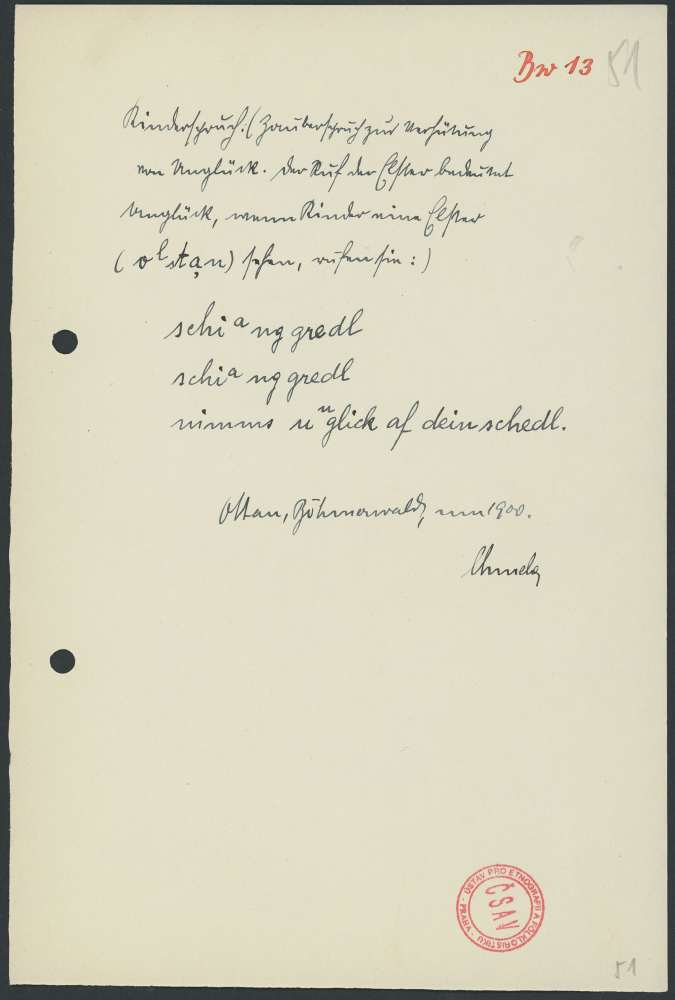 Bw 13 51
Kinderspruch: (Zauberspruch zur Verhütung
von Unglück. Der Ruf der Elster bedeutet
Unglück, wenn Kinder eine Elster
(olstạn) sehen, rufen sie:)
schiang gredl
schiang gredl
nimms unglick af dein schedl.
Ottau, Böhmerwald, um 1900.
ÚSTAV PRO ETNOGRAFII A FOLKLORISTIKU · PRAHA ·
ČSAV
51